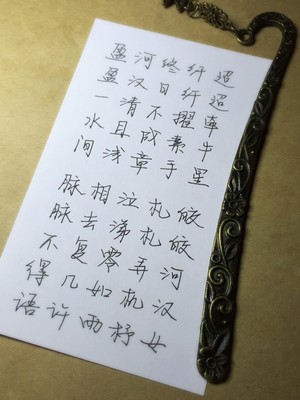 迢迢牵牛星 皎皎河汉女
纤纤擢素手 札札弄机杼
终日不成章 泣涕零如雨
河汉清且浅 相去复几许
盈盈一水间 脉脉不得语